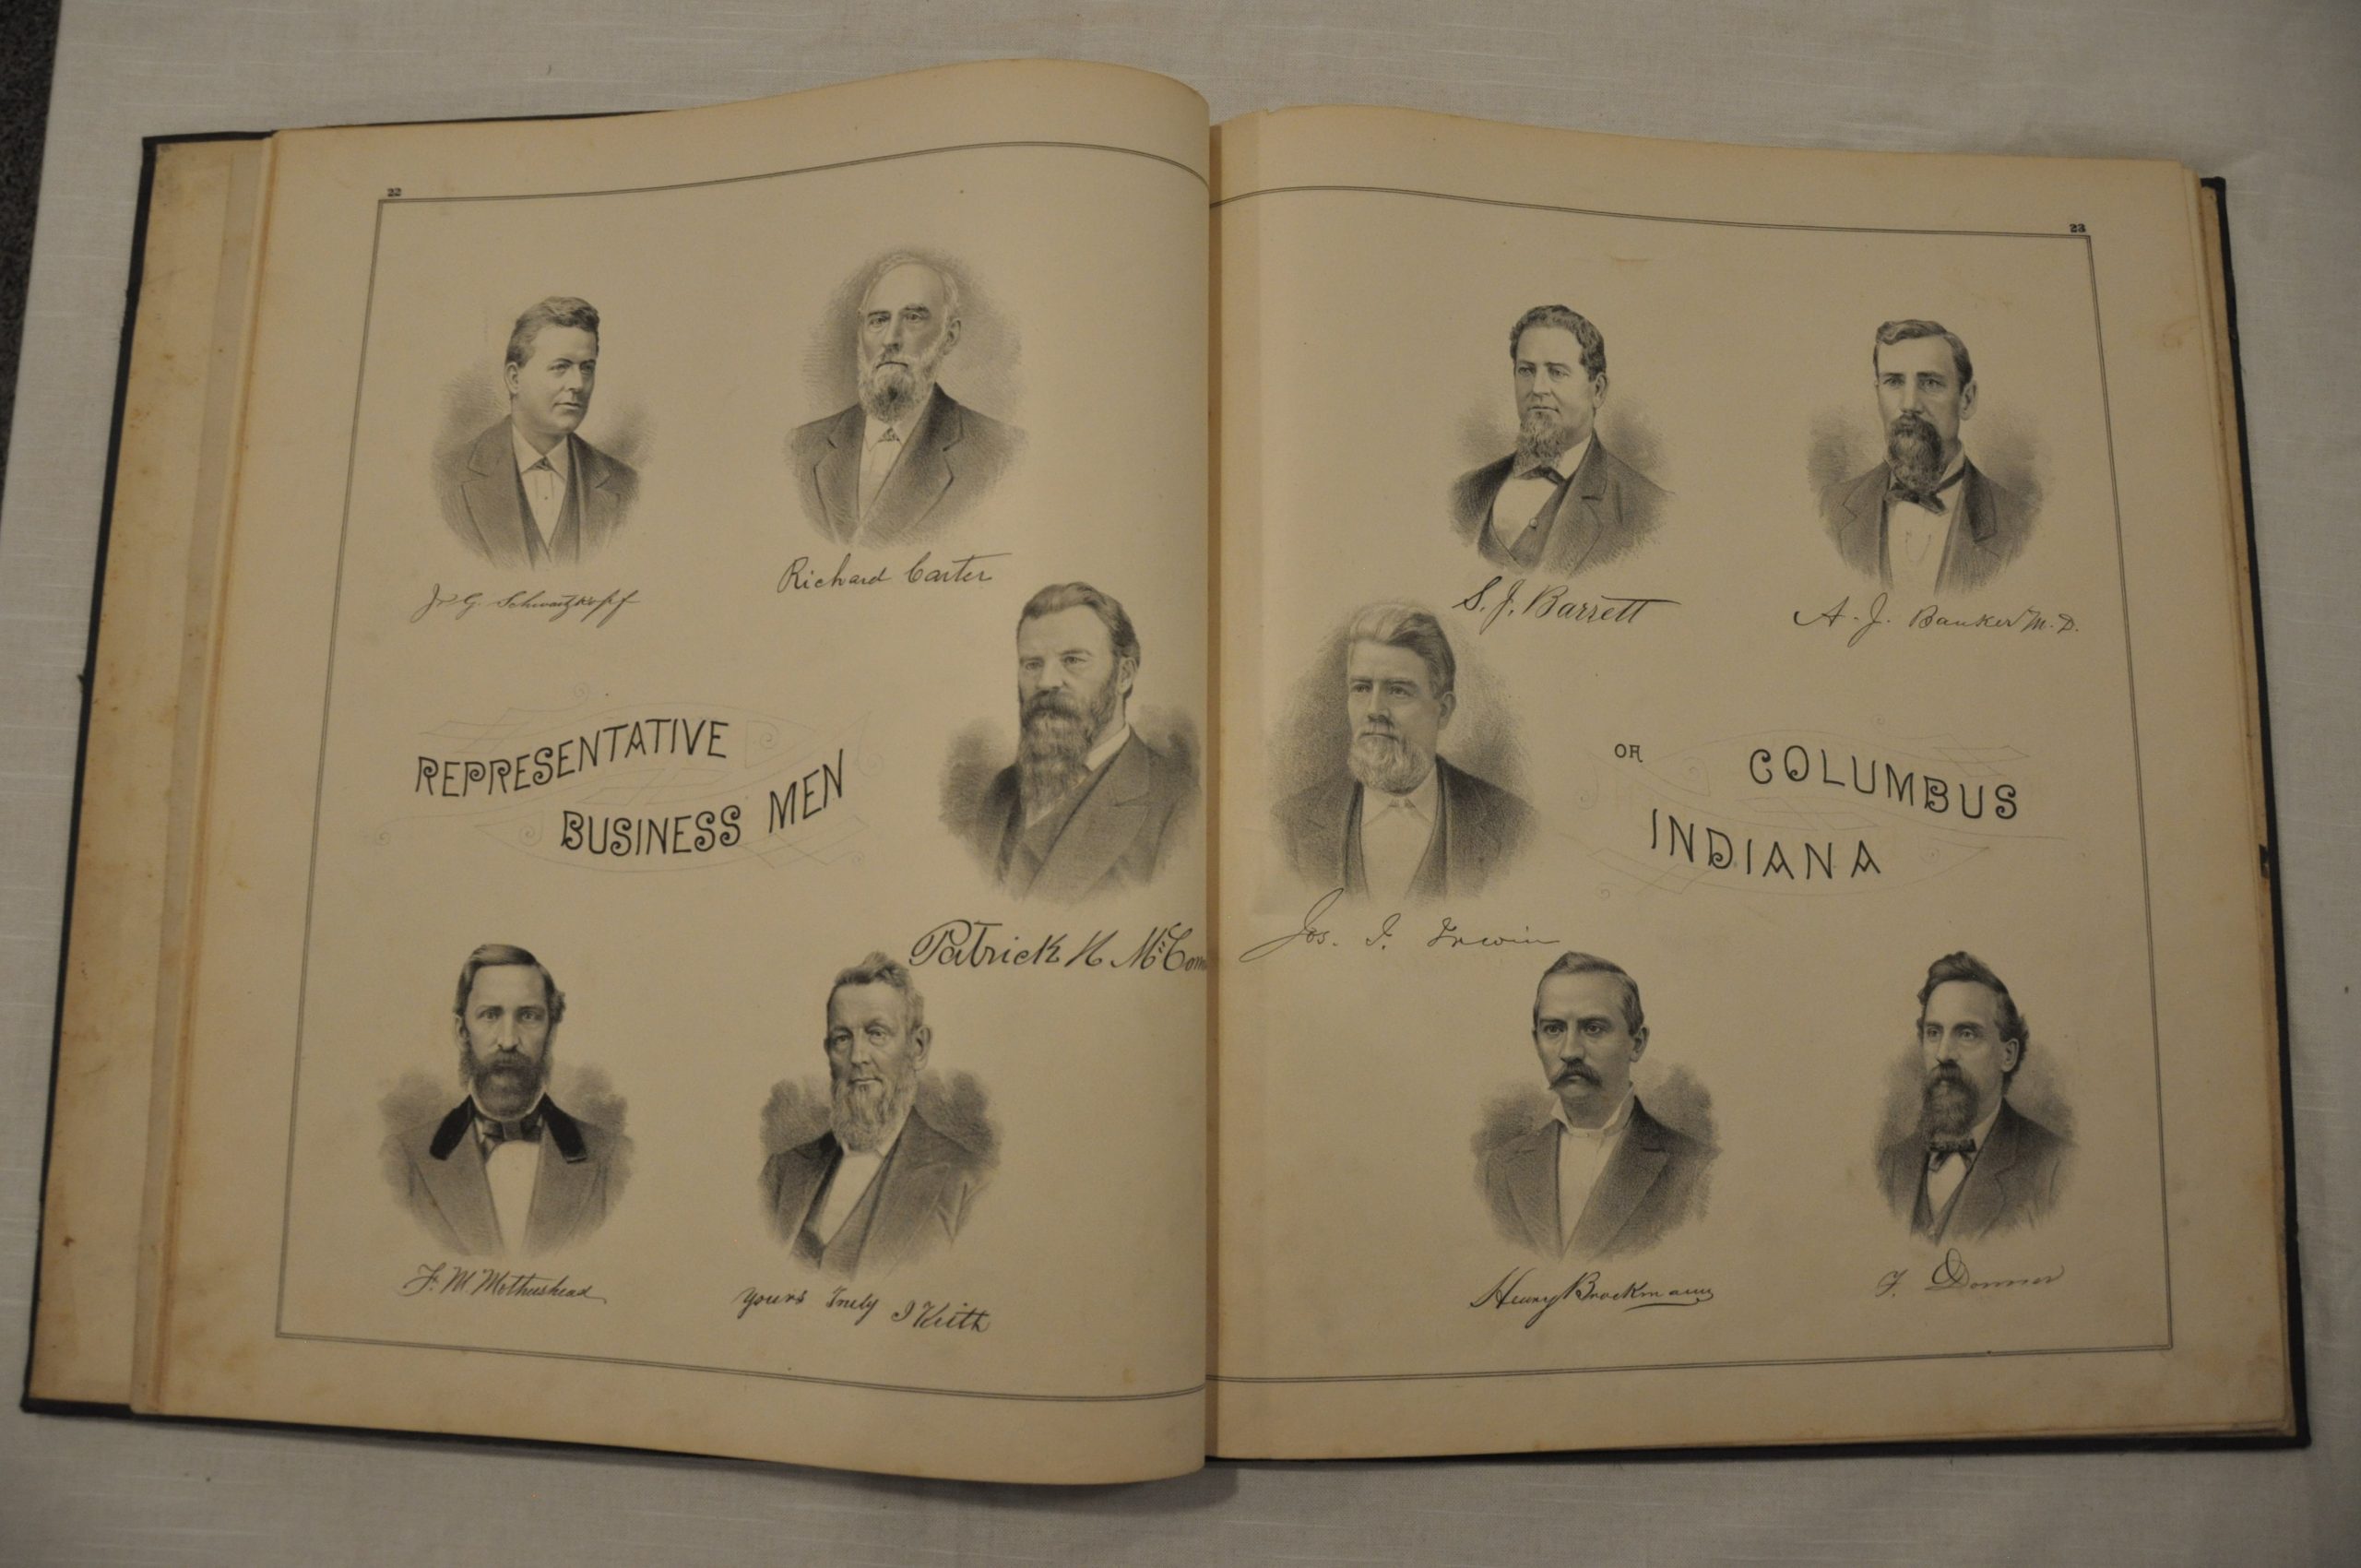 22
Jn. G. Schwartzkopf
Richard Carter
REPRESENTATIVE
BUSINESS MEN
Patrick H McCorm
F. M. Mothershead
Yours Truly I Keith
23
S. J. Barrett
A. J. Banker M. D.
Jos. I. Irwin
OF COLUMBUS
INDIANA
Henry Brockmann
F. Donner